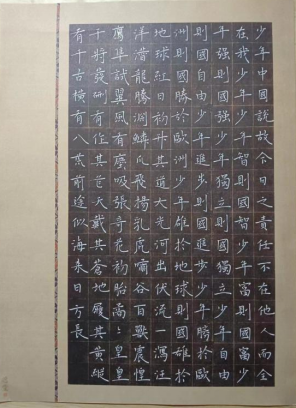 少年中國說故今日之責任不在他人而全
在我少年少年智則國智少年富則國富少
年强則國强少年獨立則國獨立少年自由
則國自由少年進步則國進步少年勝於歐
洲則國勝於歐洲少年雄於地球則國雄於
地球紅日初升其道大光河出伏流一瀉汪
洋潛龍騰淵鱗爪飛揚乳虎嘯谷百獸震惶
鷹隼試翼風有塵吸張奇花初胎矞々皇皇
干將發硎有作其芒天戴其蒼地履其黃縱
有千古橫有八荒前途似海來日方長